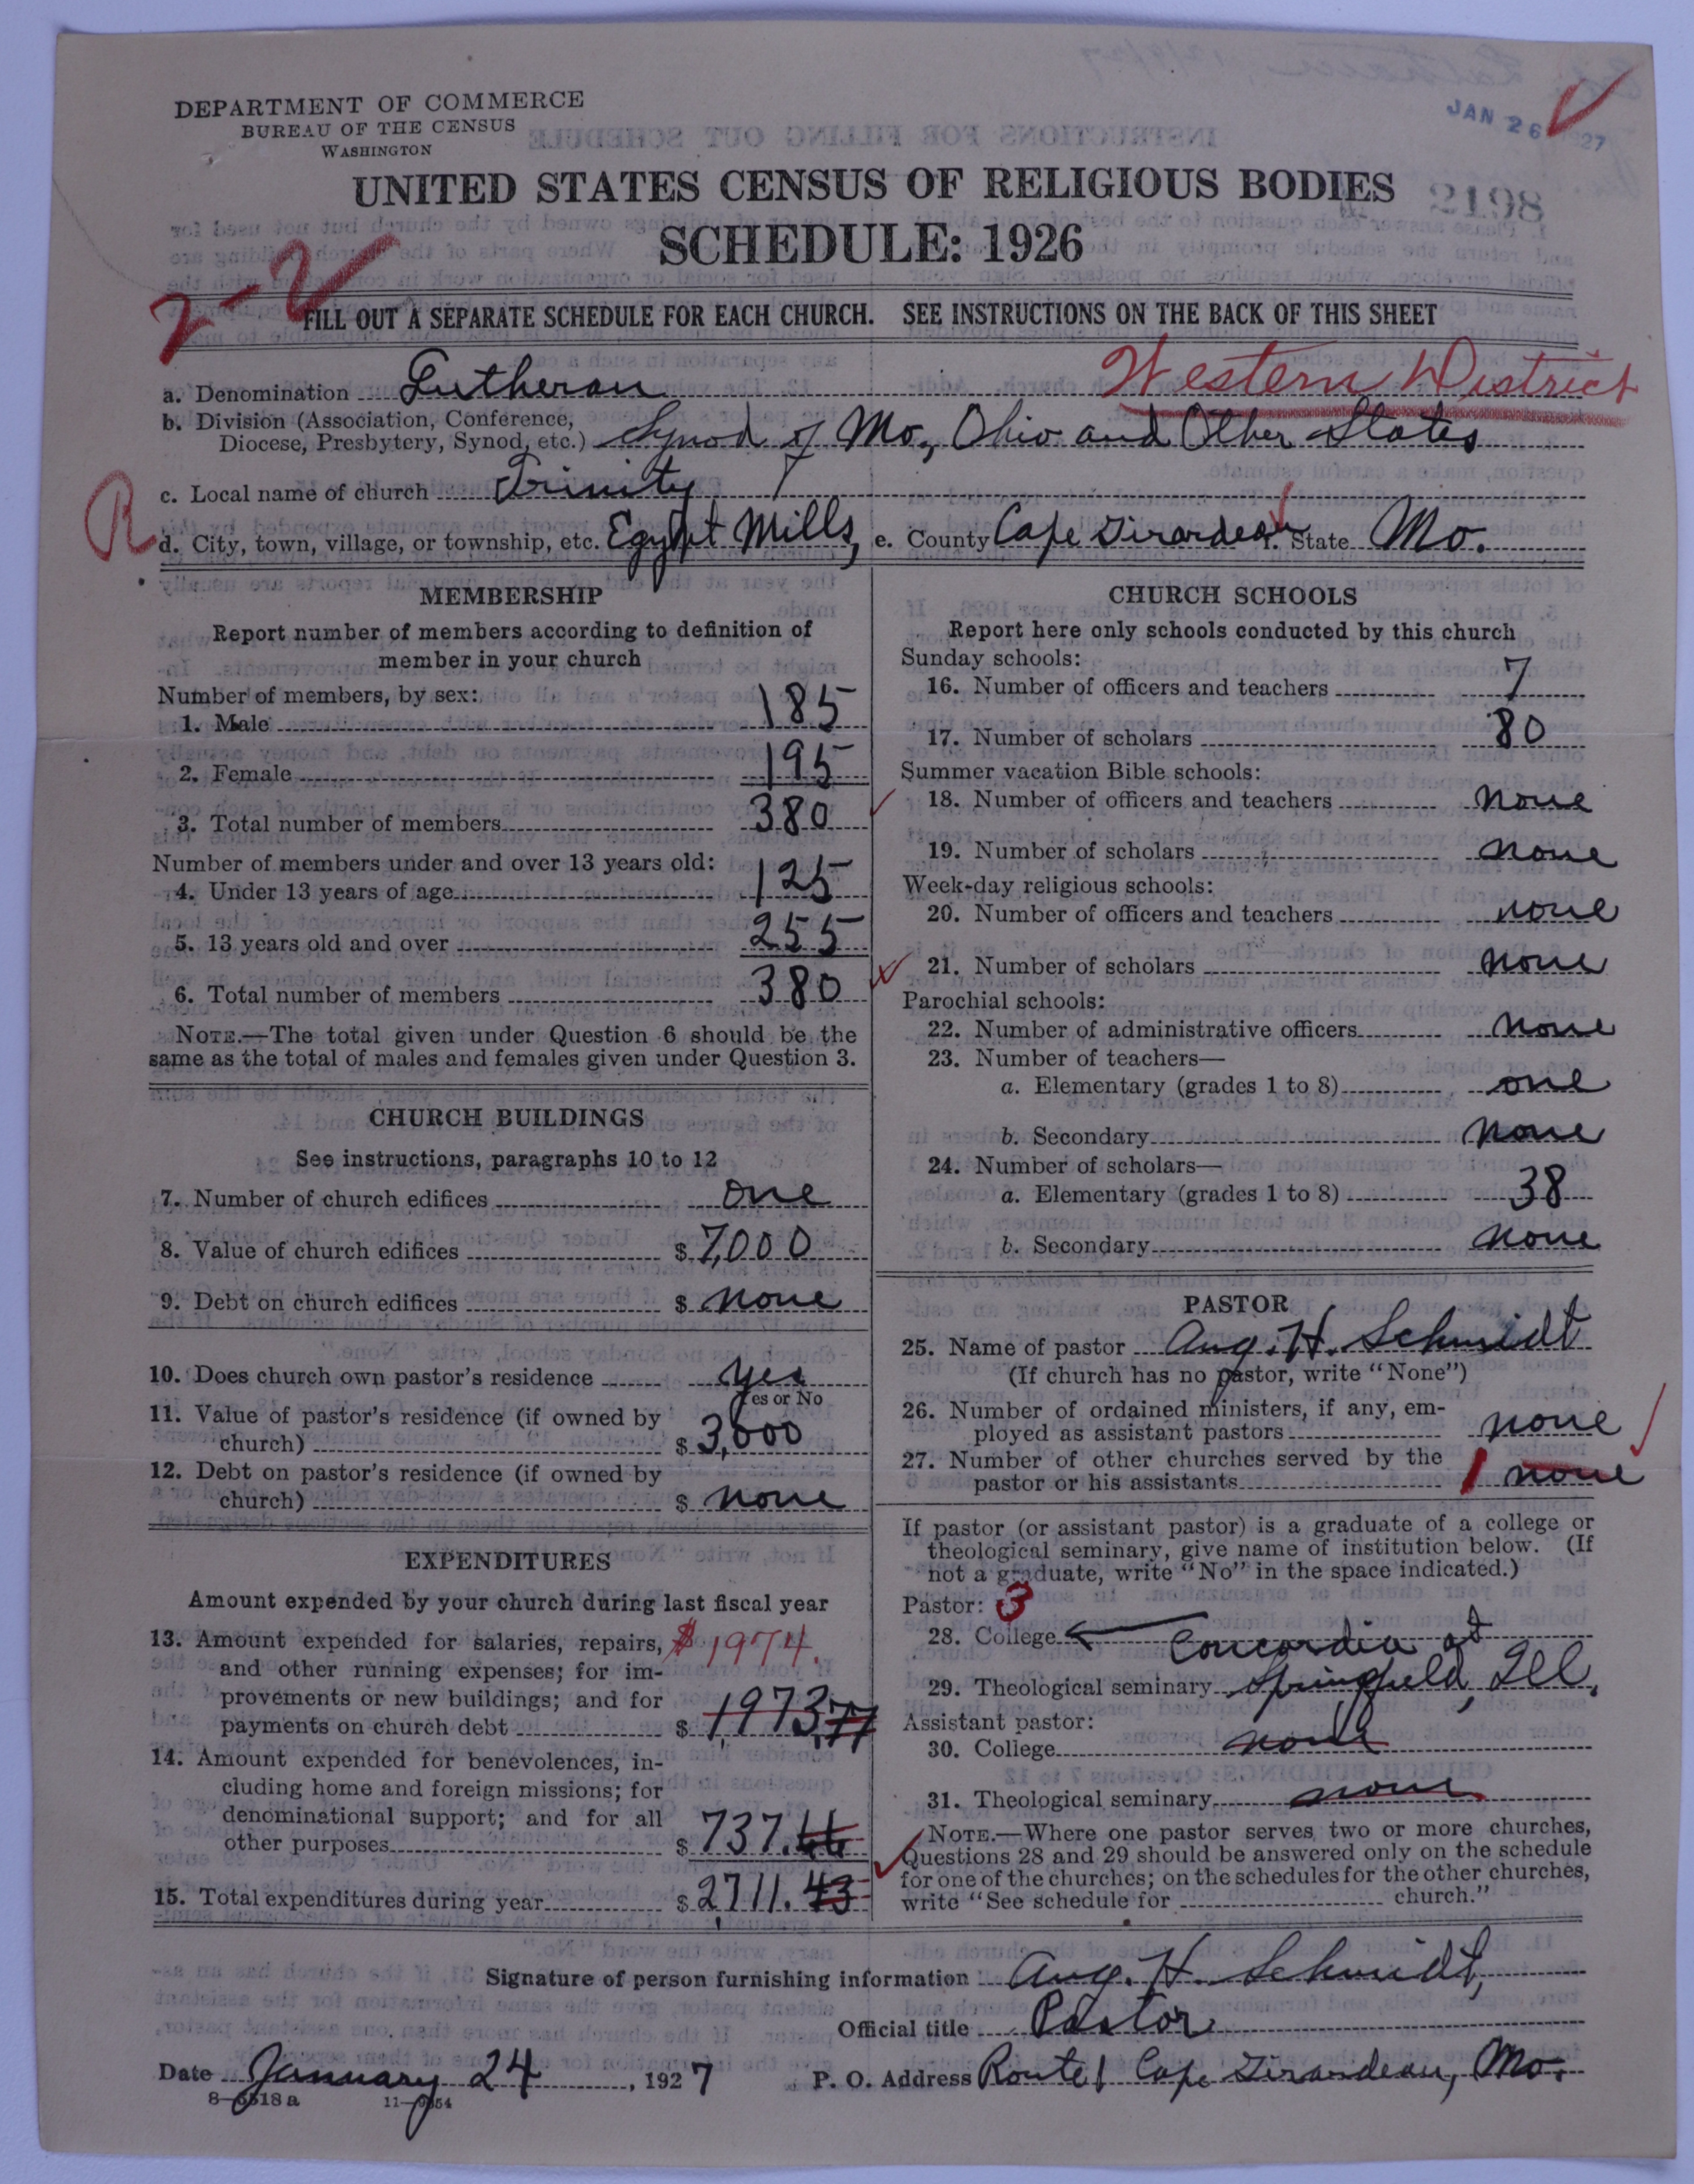 DEPARTMENT OF COMMERCE
BUREAU OF THE CENSUS
WASHINGTON
JAN 26 1927
2198
UNITED STATES CENSUS OF RELIGIOUS BODIES
SCHEDULE: 1926
FILL OUT A SEPARATE SCHEDULE FOR EACH CHURCH. SEE INSTRUCTIONS ON THE BACK OF THIS SHEET
Western District
a. Denomination Lutheran
b. Division (Association, Conference,
Diocese, Presbytery, Synod, etc.) Synod of Mo., Ohio and Other States
c. Local name of church Trinity
R
d. City, town, village, or township, etc. Egypt Mills, e. County Cape Girardeau f. State Mo.
MEMBERSHIP
Report number of members according to definition of
member in your church
Number of members, by sex:
1. Male 185
2. Female 195
3. Total number of members 380
Number of members under and over 13 years old:
4. Under 13 years of age 125
5. 13 years old and over 255
6. Total number of members 380
NOTE.—The total given under Question 6 should be the
same as the total of males and females given under Question 3.
CHURCH BUILDINGS
See instructions, paragraphs 10 to 12
7. Number of church edifices one
8. Value of church edifices $ 7,000
9. Debt on church edifices $ none
10. Does church own pastor's residence yes
Yes or No
11. Value of pastor's residence (if owned by
church) $ 3,000
12. Debt on pastor's residence (if owned by
church) $ none
EXPENDITURES
Amount expended by your church during last fiscal year
13. Amount expended for salaries, repairs, $1974.
and other running expenses; for im-
provements or new buildings; and for
payments on church debt $ 1973,77
14. Amount expended for benevolences, in-
cluding home and foreign missions; for
denominational support; and for all
other purposes $ 737.66
15. Total expenditures during year $ 2711.43
CHURCH SCHOOLS
Report here only schools conducted by this church
Sunday schools:
16. Number of officers and teachers 7
17. Number of scholars 80
Summer vacation Bible schools:
18. Number of officers and teachers none
19. Number of scholars none
Week-day religious schools:
20. Number of officers and teachers none
21. Number of scholars none
Parochial schools:
22. Number of administrative officers none
23. Number of teachers—
a. Elementary (grades 1 to 8) one
b. Secondary none
24. Number of scholars—
a. Elementary (grades 1 to 8) 38
b. Secondary none
PASTOR
25. Name of pastor Aug. H. Schmidt
(If church has no pastor, write "None")
26. Number of ordained ministers, if any, em-
ployed as assistant pastors none
27. Number of other churches served by the
pastor or his assistants 1 none
If pastor (or assistant pastor) is a graduate of a college or
theological seminary, give name of institution below. (If
not a graduate, write "No" in the space indicated.)
Pastor: 3
28. College Concordia at
29. Theological seminary Springfield, Ill.
Assistant pastor:
30. College none
31. Theological seminary none
NOTE.—Where one pastor serves two or more churches,
Questions 28 and 29 should be answered only on the schedule
for one of the churches; on the schedules for the other churches,
write "See schedule for church."
Signature of person furnishing information Aug. H. Schmidt,
Official title Pastor
Date January 24, 1927 P. O. Address Route 1 Cape Girardeau, Mo.
8—5518a 11—9854